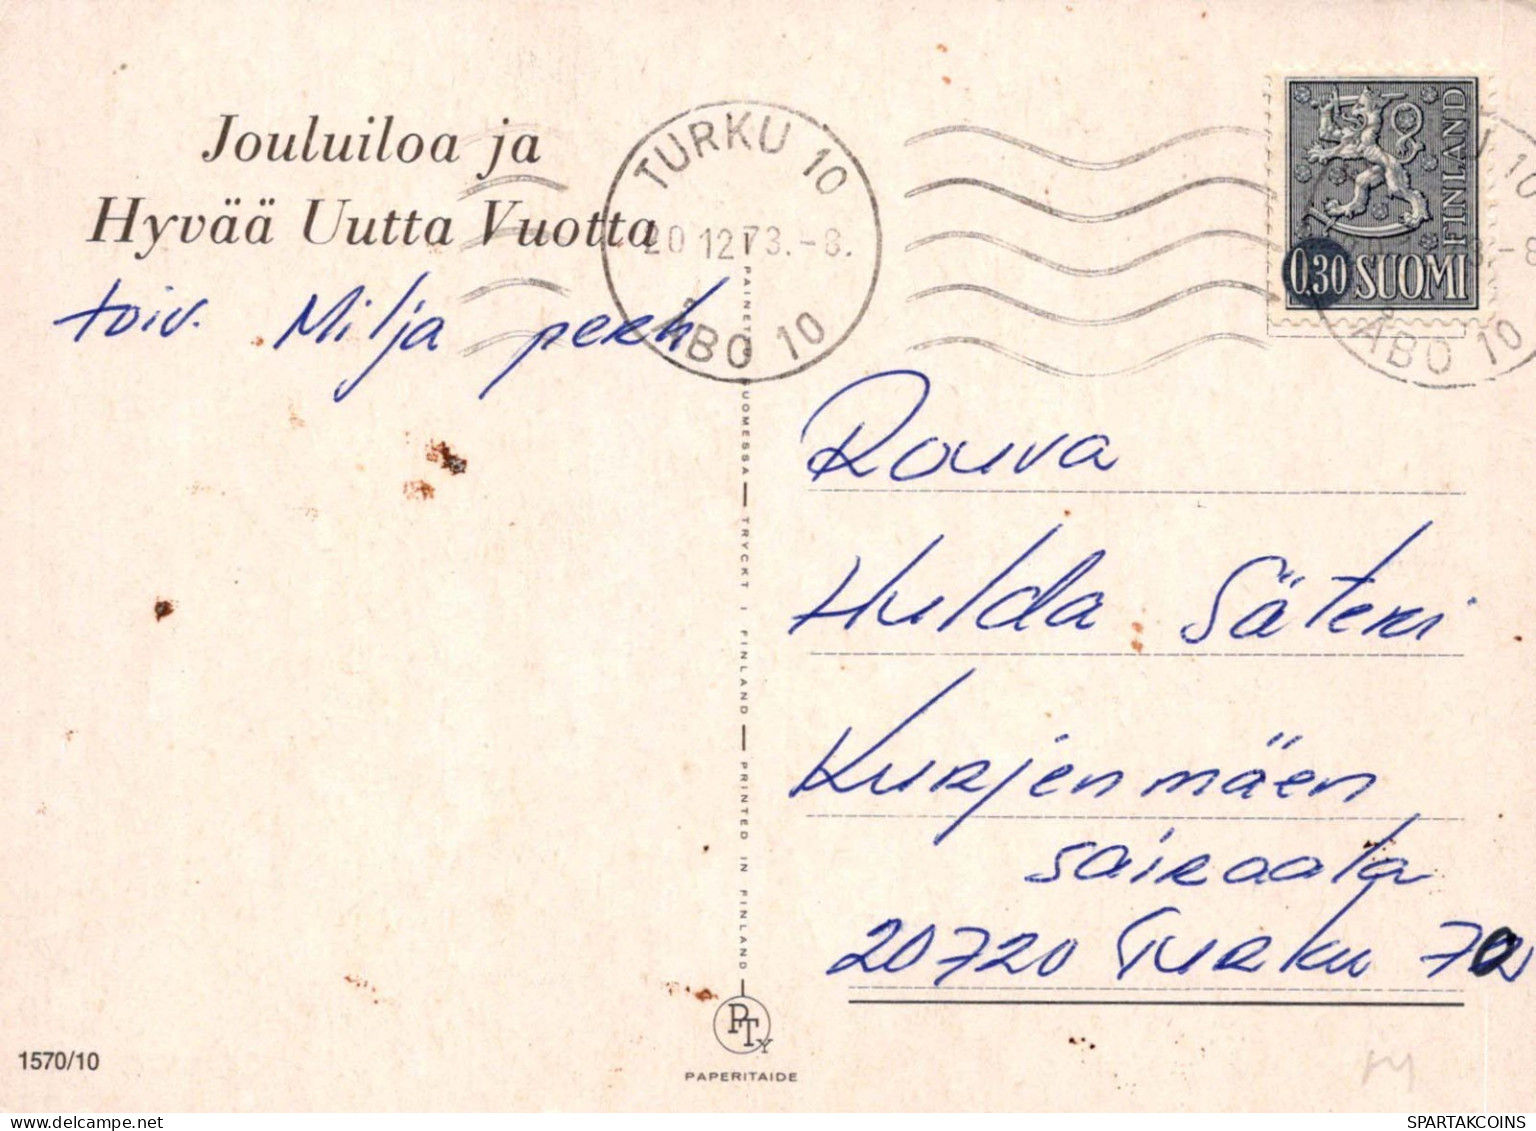 Jouluiloa ja
Hyvää Uutta Vuotta
toiv. Milja perh
TURKU 10
20.12.73.-8.
ÅBO 10
0,30 SUOMI
FINLAND
U 10
3.-8
ÅBO 10
Rouva
Hulda Säteri
Kurjenmäen
sairaala
20720 Turku 72
PAINETTU SUOMESSA — TRYCKT I FINLAND — PRINTED IN FINLAND
PTY
PAPERITAIDE
1570/10
SPARTAKCOINS